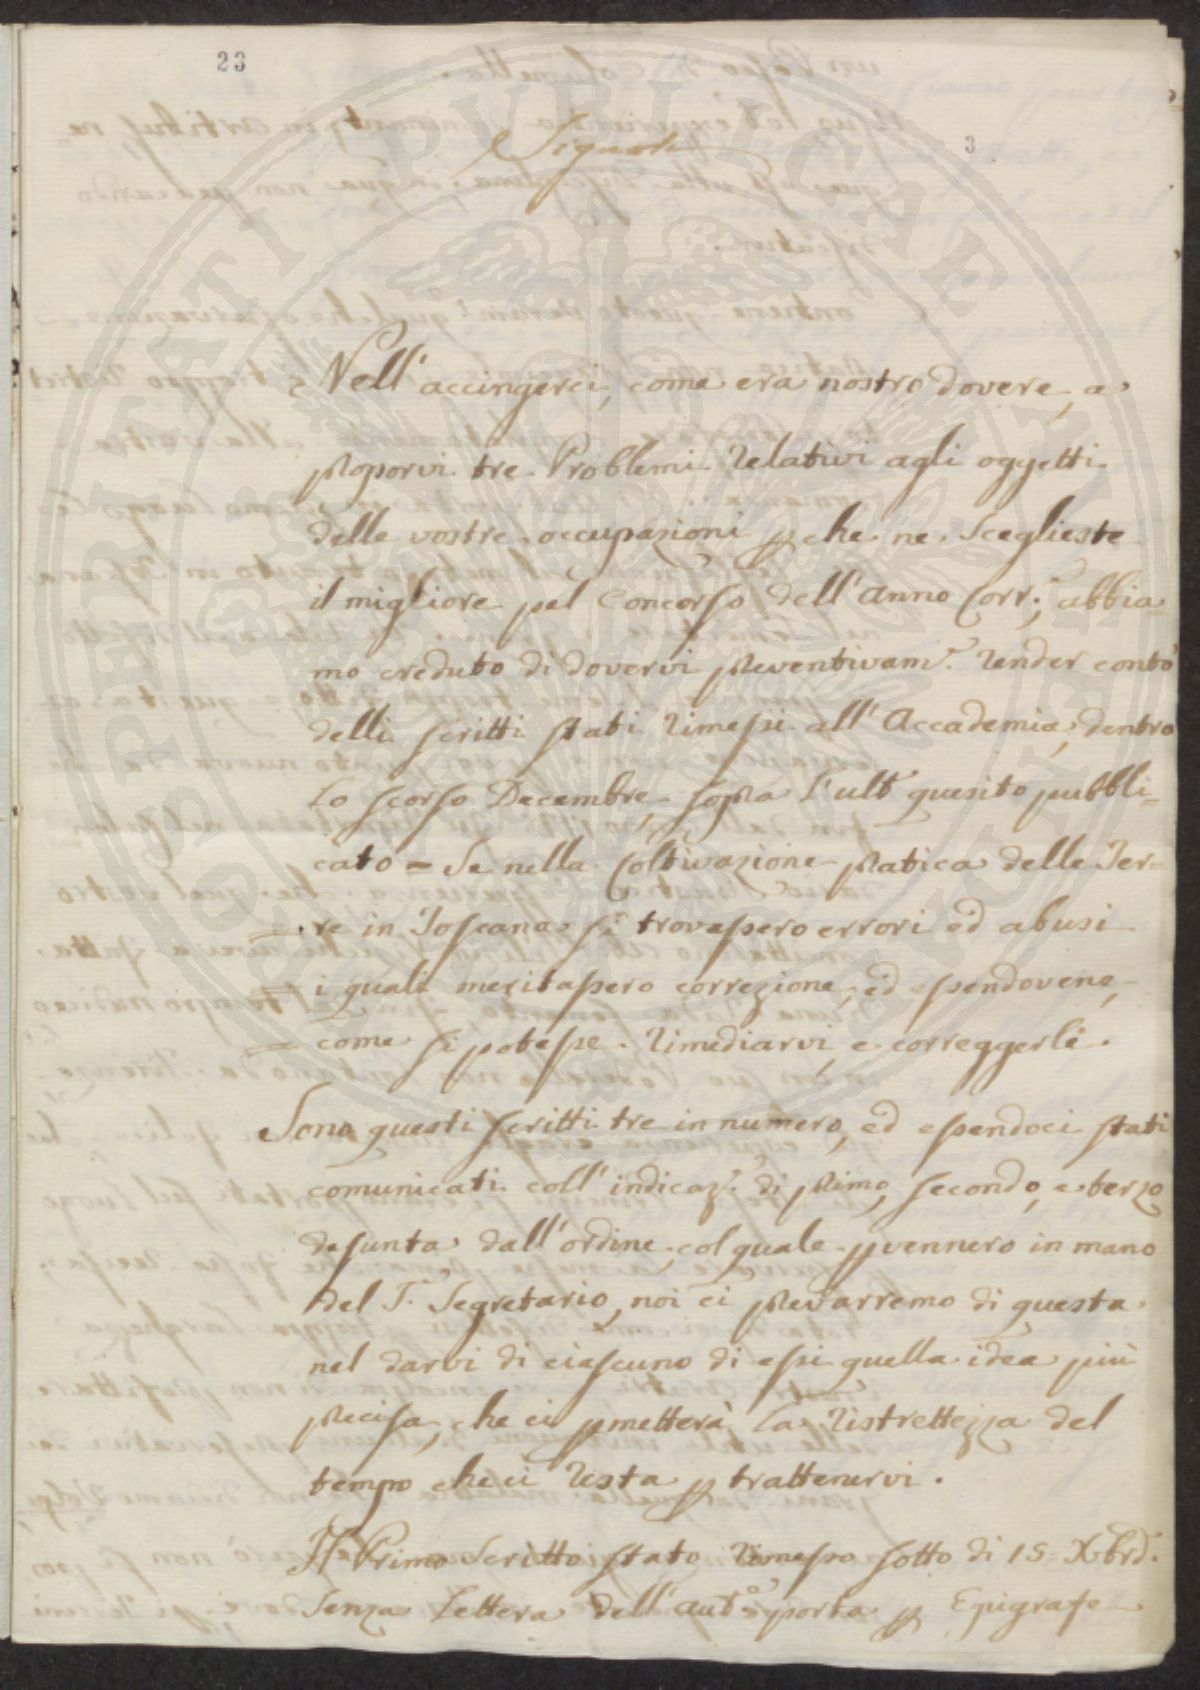 23
3
Signori
Nell' accingerci, come era nostro dovere, a
proporvi tre Problemi relativi agli oggetti
delle vostre occupazioni p che ne sceglieste
il migliore pel Concorso dell' Anno Corr.e, abbia-
mo creduto di dovervi preventivam.e render conto
delli scritti stati rimessi all' Accademia, dentro
lo scorso Decembre sopra l' ult.o quesito pubbli-
cato = Se nella Coltivazione pratica delle Ter-
= re in Toscana si trovassero errori ed abusi
= i quali meritassero correzione, ed essendovene,
= come si potesse rimediarvi, e correggerli.
Sono questi scritti tre in numero, ed essendoci stati
comunicati coll' indicaz.e di primo, secondo, e terzo
desunta dall' ordine, col quale pvennero in mano
del S.r Segretario, noi ci prevarremo di questa
nel darvi di ciascuno di essi quella idea più
precisa, che ci pmetterà la ristrettezza del
tempo che ci resta p trattenervi.
Il Primo Scritto stato rimesso sotto di 15= Xbre
senza Lettera dell' aut.e porta p Epigrafe
PROSPERITATI PUBLICAE AUGENDAE